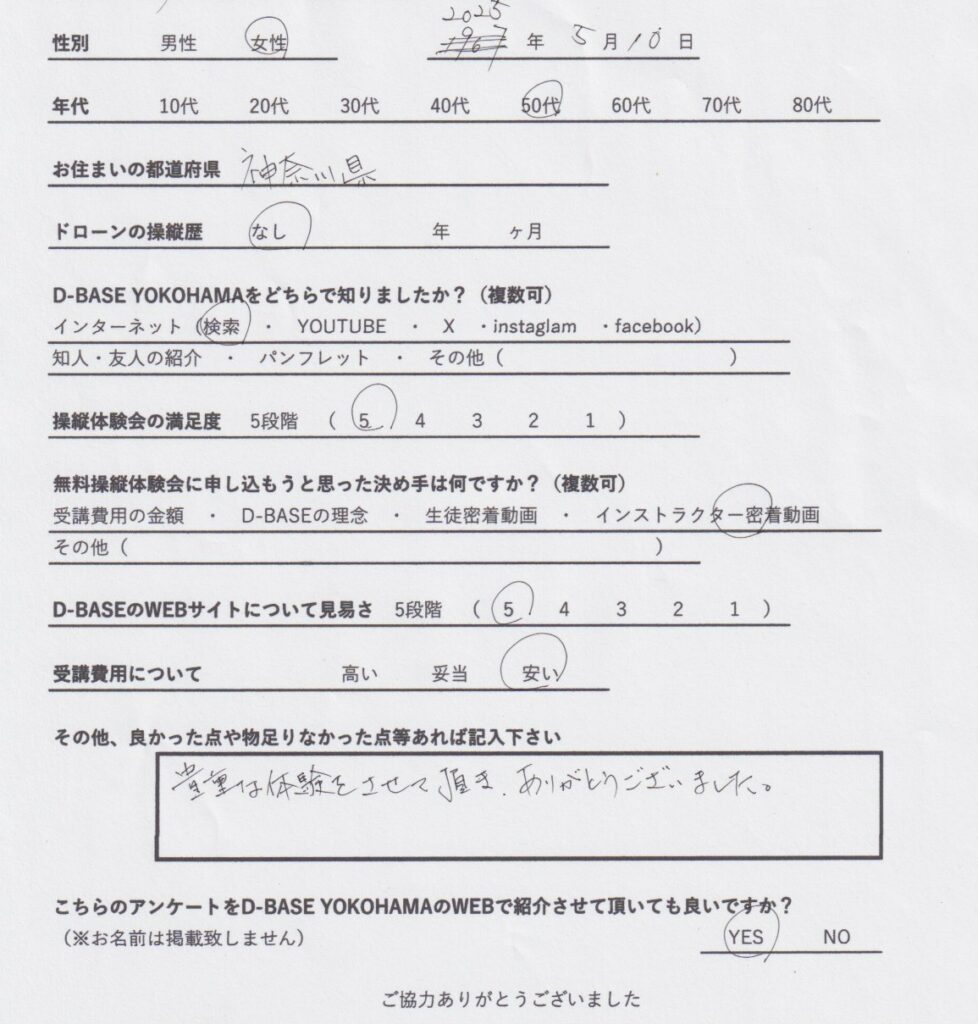 性別 男性 女性 2025 年 5月10日
年代 10代 20代 30代 40代 50代 60代 70代 80代
お住まいの都道府県 神奈川県
ドローンの操縦歴 なし 年 ヶ月
D-BASE YOKOHAMAをどちらで知りましたか？（複数可）
インターネット（検索 ・ YOUTUBE ・ X ・instaglam ・facebook）
知人・友人の紹介 ・ パンフレット ・ その他（ ）
操縦体験会の満足度 5段階 （ 5 4 3 2 1 ）
無料操縦体験会に申し込もうと思った決め手は何ですか？（複数可）
受講費用の金額 ・ D-BASEの理念 ・ 生徒密着動画 ・ インストラクター密着動画
その他（ ）
D-BASEのWEBサイトについて見易さ 5段階 （ 5 4 3 2 1 ）
受講費用について 高い 妥当 安い
その他、良かった点や物足りなかった点等あれば記入下さい
貴重な体験をさせて頂き、ありがとうございました。
こちらのアンケートをD-BASE YOKOHAMAのWEBで紹介させて頂いても良いですか？
（※お名前は掲載致しません） YES NO
ご協力ありがとうございました